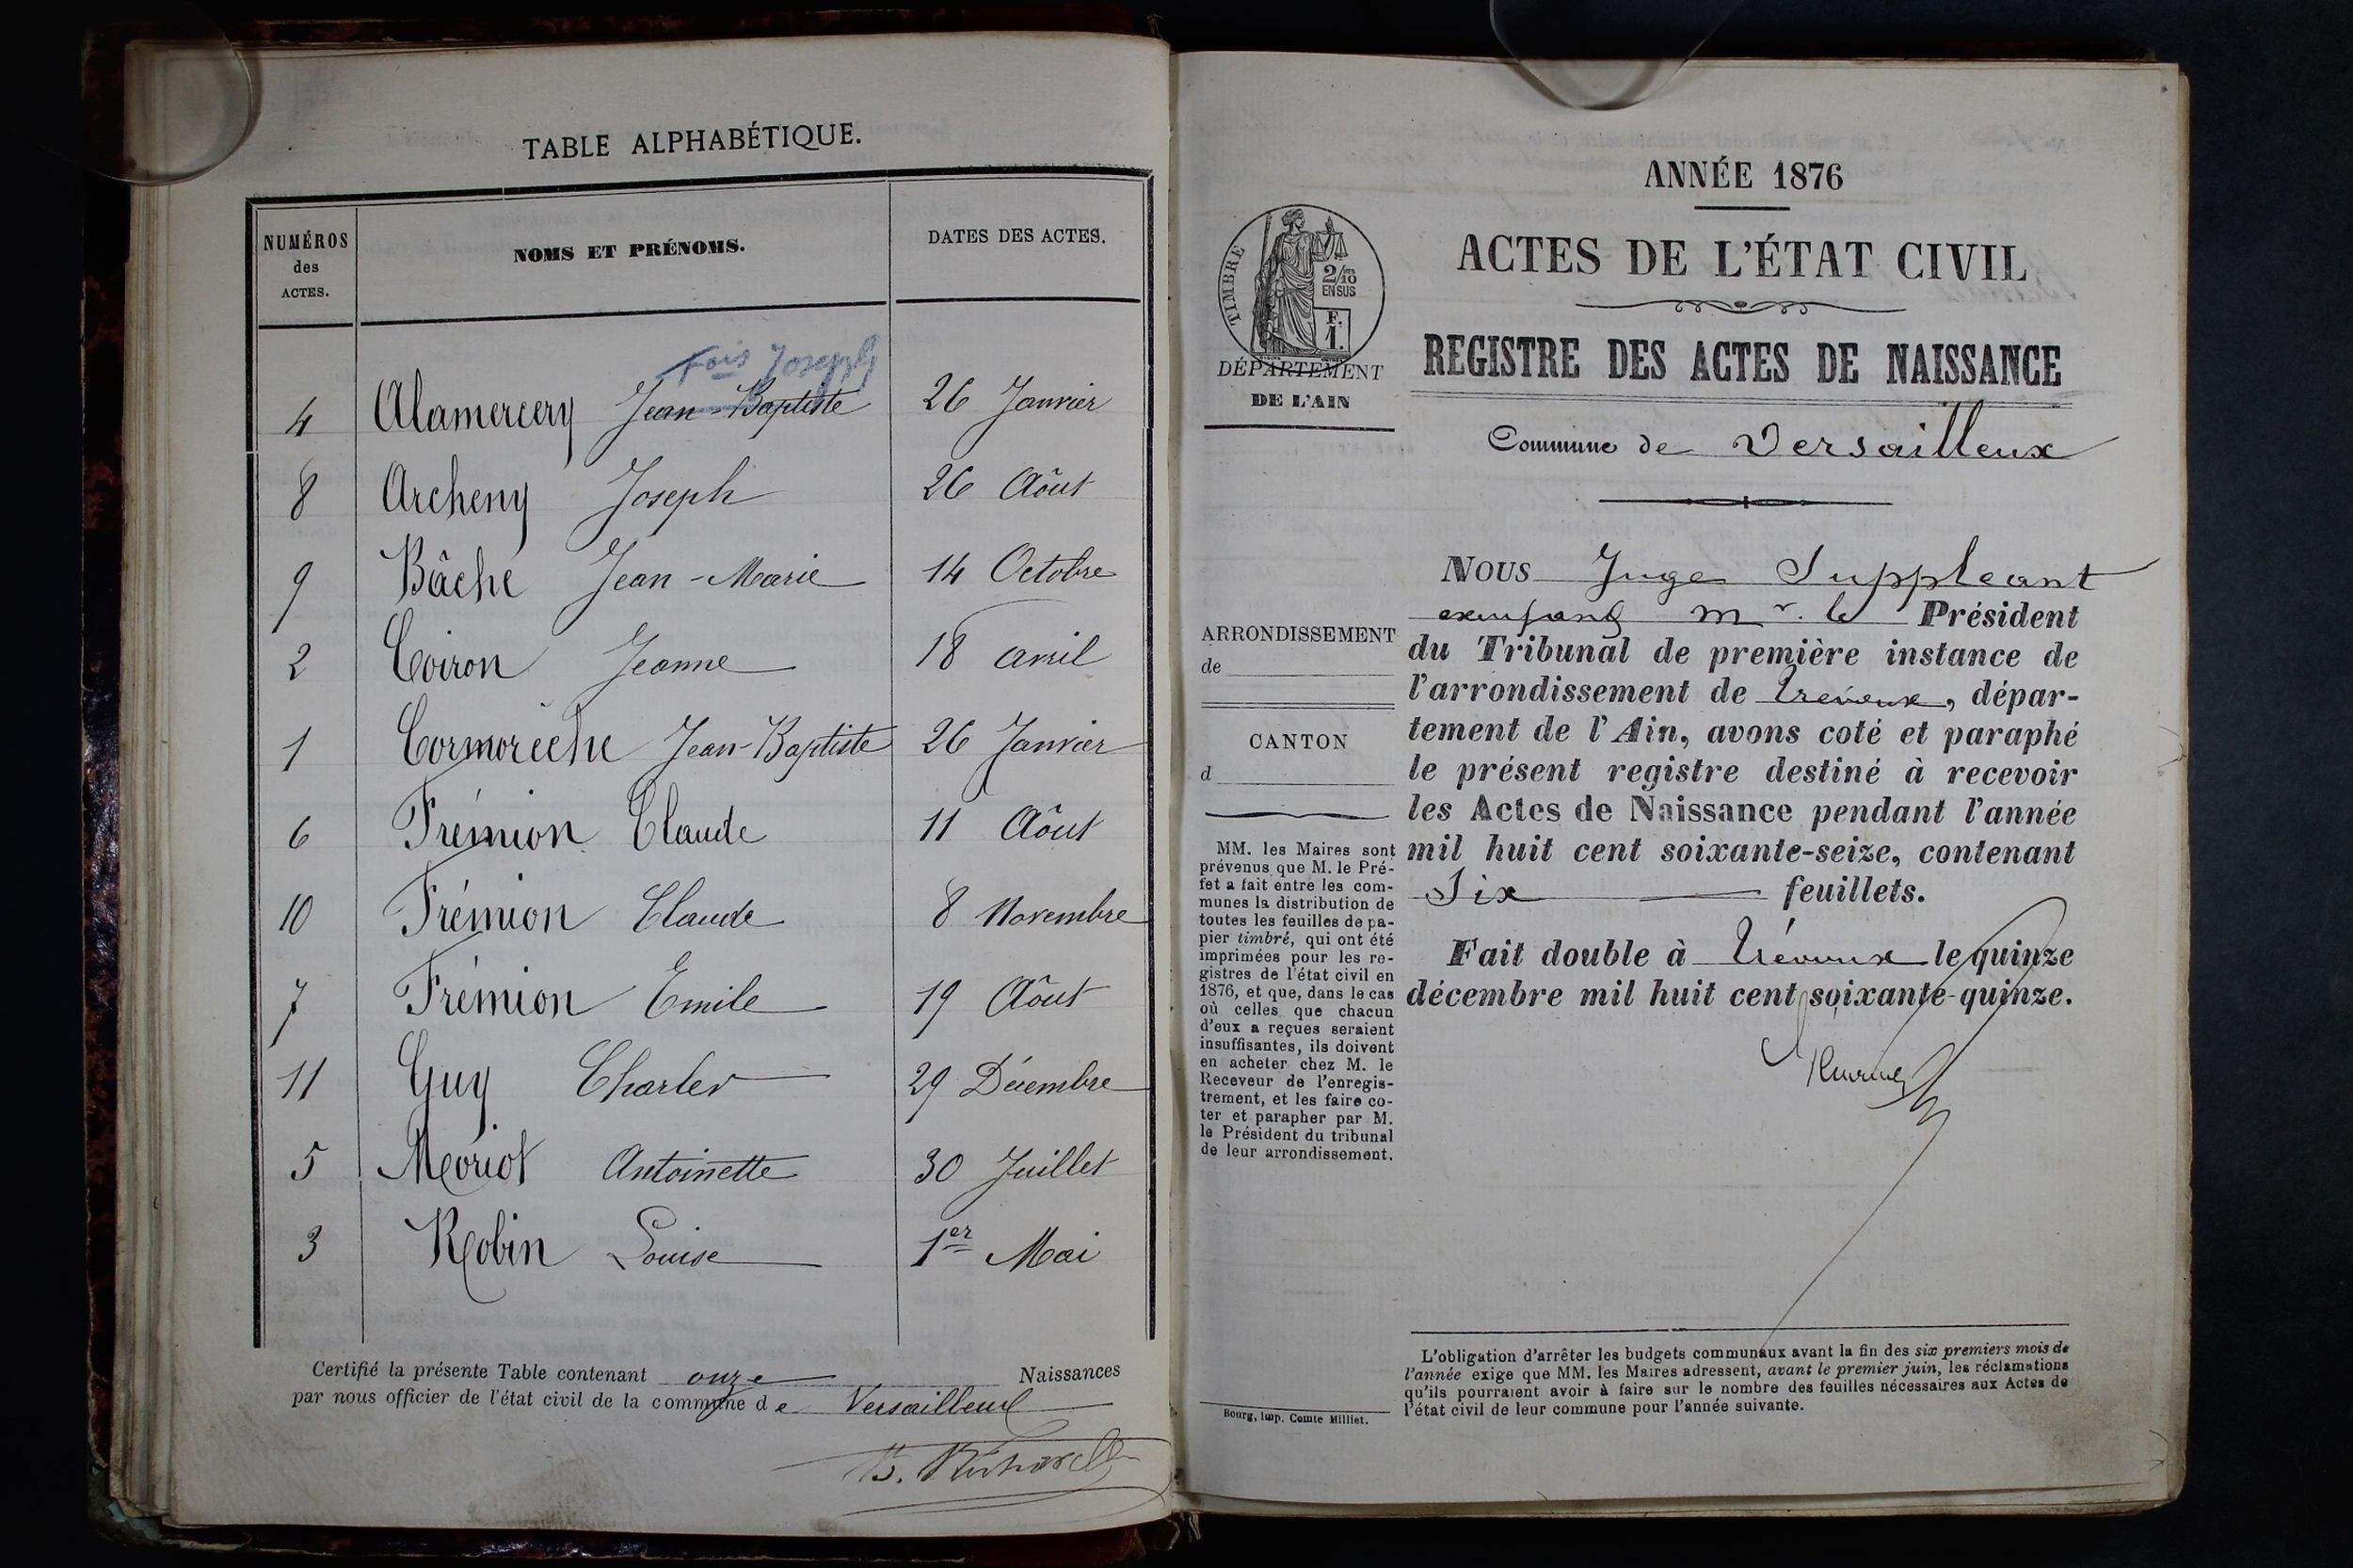 TABLE ALPHABÉTIQUE.
NUMÉROS des ACTES. NOMS ET PRÉNOMS. DATES DES ACTES.
Fois Joseph
4 Alamercery Jean-Baptiste 26 Janvier
8 Archeny Joseph 26 Aôut
9 Bâché Jean-Marie 14 Octobre
2 Coiron Jeanne 18 avril
1 Cormorèche Jean-Baptiste 26 Janvier
6 Frémion Claude 11 Aôut
10 Frémion Claude 8 Novembre
7 Frémion Emile 19 Aôut
11 Guy Charles 29 Décembre
5 Moriot Antoinette 30 Juillet
3 Robin Louise 1er Mai
Certifié la présente Table contenant onze Naissances
par nous officier de l'état civil de la commune de Versailleux
ANNÉE 1876
ACTES DE L'ÉTAT CIVIL
REGISTRE DES ACTES DE NAISSANCE
Commune de Versailleux
TIMBRE
2/10
EN SUS
F.
1.
DÉPARTEMENT
DE L'AIN
ARRONDISSEMENT
de
CANTON
d
MM. les Maires sont
prévenus que M. le Pré-
fet a fait entre les com-
munes la distribution de
toutes les feuilles de pa-
pier timbré, qui ont été
imprimées pour les re-
gistres de l'état civil en
1876, et que, dans le cas
où celles que chacun
d'eux a reçues seraient
insuffisantes, ils doivent
en acheter chez M. le
Receveur de l'enregis-
trement, et les faire co-
ter et parapher par M.
le Président du tribunal
de leur arrondissement.
Bourg, imp. Comte Milliet.
NOUS Juge Suppleant
Mr. le Président
du Tribunal de première instance de
l'arrondissement de Trevoux, dépar-
tement de l'Ain, avons coté et paraphé
le présent registre destiné à recevoir
les Actes de Naissance pendant l'année
mil huit cent soixante-seize, contenant
Six feuillets.
Fait double à Trévoux le quinze
décembre mil huit cent soixante-quinze.
L'obligation d'arrêter les budgets communaux avant la fin des six premiers mois de
l'année exige que MM. les Maires adressent, avant le premier juin, les réclamations
qu'ils pourraient avoir à faire sur le nombre des feuilles nécessaires aux Actes de
l'état civil de leur commune pour l'année suivante.